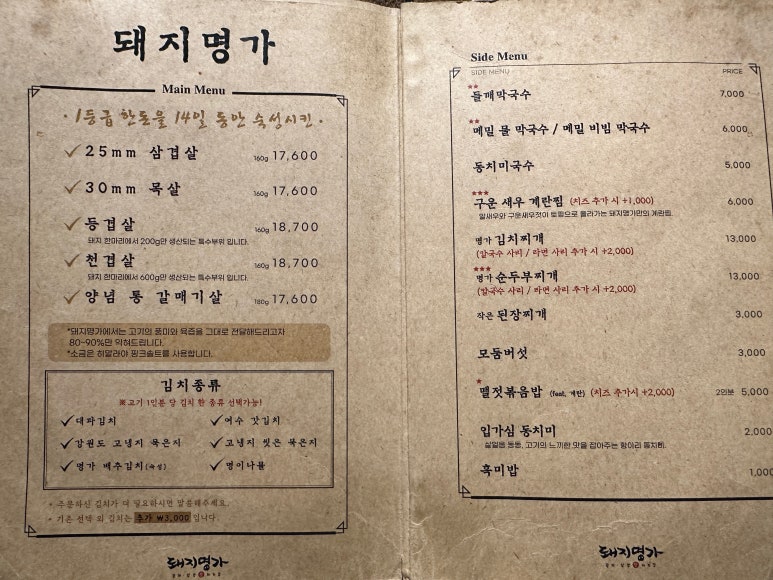 돼지명가
Main Menu
· 1등급 한돈을 14일 동안 숙성시킨 ·
25mm 삼겹살 160g 17,600
30mm 목살 160g 17,600
등겹살 160g 18,700
돼지 한마리에서 200g만 생산되는 특수부위 입니다.
천겹살 160g 18,700
돼지 한마리에서 600g만 생산되는 특수부위 입니다.
양념 통 갈매기살 180g 17,600
*돼지명가에서는 고기의 풍미와 육즙을 그대로 전달해드리고자
80~90%만 익혀드립니다.
*소금은 히말라야 핑크솔트를 사용합니다.
김치종류
※고기 1인분 당 김치 한 종류 선택가능!
대파김치 여수 갓김치
강원도 고냉지 묵은지 고냉지 씻은 묵은지
명가 배추김치(숙성) 명이나물
* 주문하신 김치가 더 필요하시면 말씀해주세요.
* 기존 선택 외 김치는 추가 ₩3,000 입니다.
돼지명가
Side Menu
SIDE MENU PRICE
★★
들깨막국수 7,000
★★
메밀 물 막국수 / 메밀 비빔 막국수 6,000
동치미국수 5,000
★★★
구운 새우 계란찜 (치즈 추가 시 +1,000) 6,000
알새우와 구운새우젓이 토핑으로 올라가는 돼지명가만의 계란찜.
명가 김치찌개 13,000
(칼국수 사리 / 라면 사리 추가 시 +2,000)
★★★
명가 순두부찌개 13,000
(칼국수 사리 / 라면 사리 추가 시 +2,000)
작은 된장찌개 3,000
모둠버섯 3,000
★
멜젓볶음밥 (feat. 계란) (치즈 추가시 +2,000) 2인분 5,000
입가심 동치미 2,000
살얼음 동동, 고기의 느끼한 맛을 잡아주는 항아리 동치미.
흑미밥 1,000
돼지명가